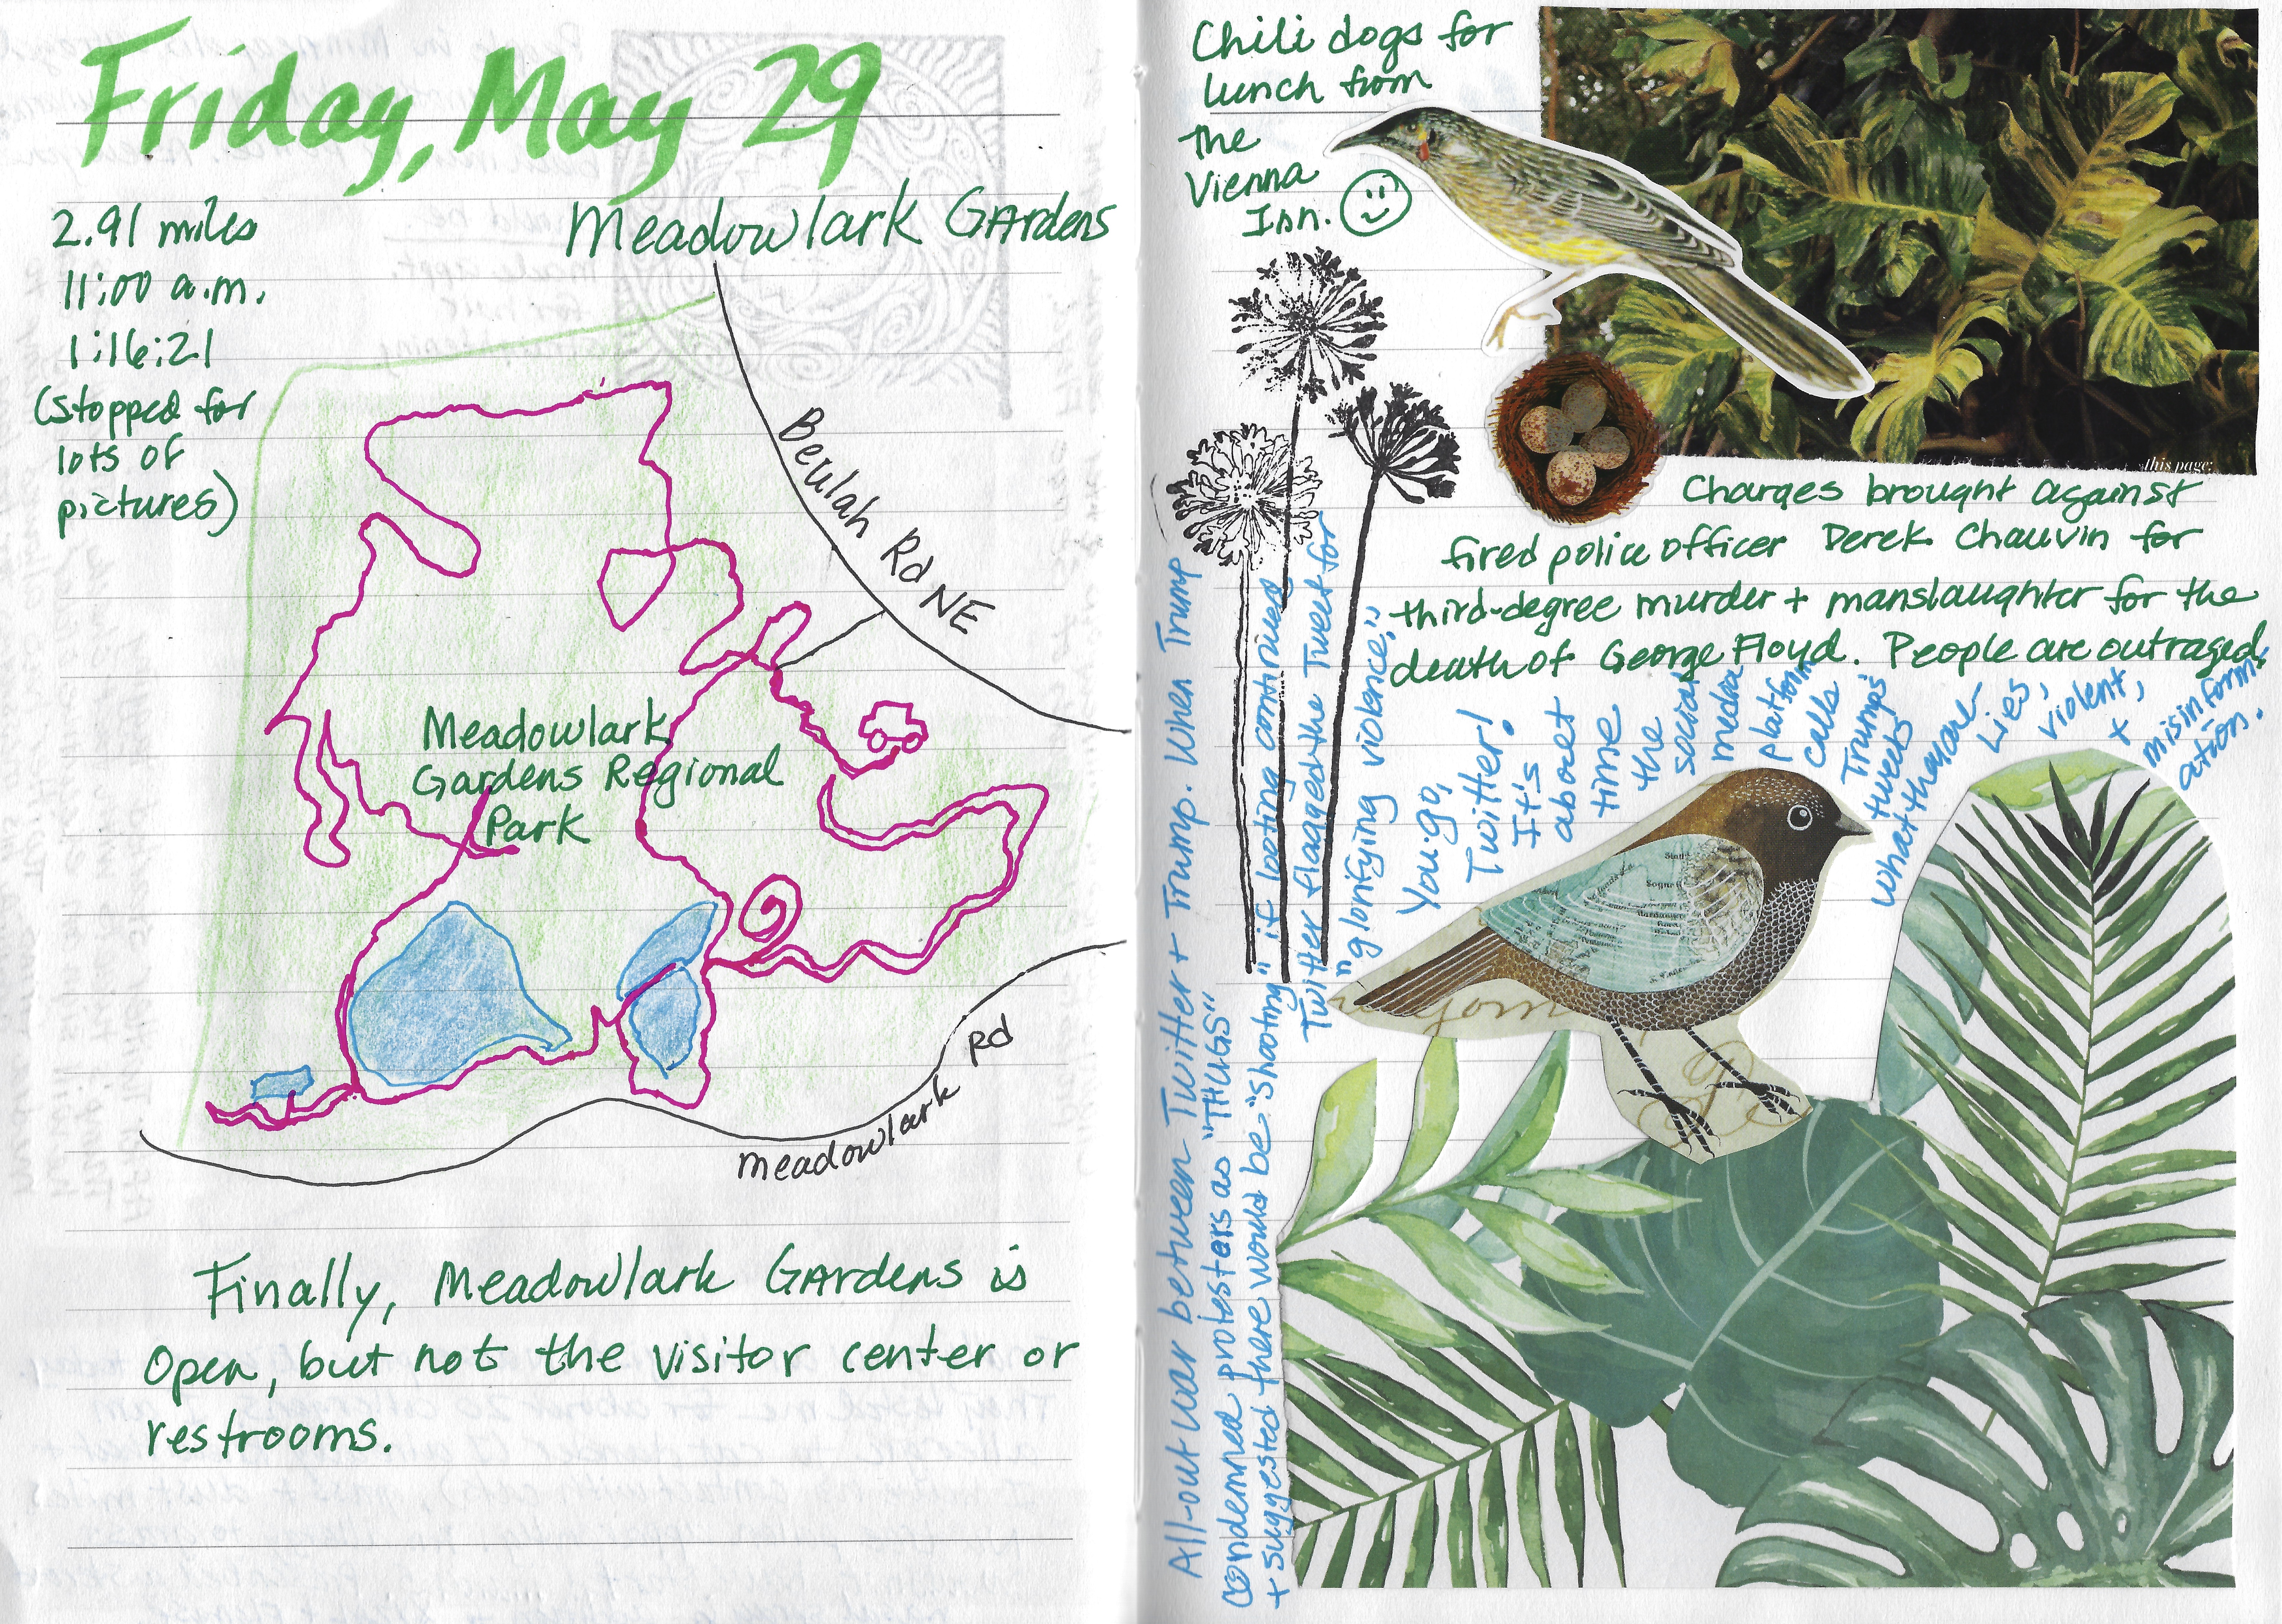 Friday, May 29
2.91 miles
11:00 a.m.
1:16:21
(stopped for
lots of
pictures)
Meadowlark Gardens
Beulah Rd NE
Meadowlark
Gardens Regional
Park
Meadowlark Rd
Finally, Meadowlark Gardens is
open, but not the visitor center or
restrooms.
Chili dogs for
lunch from
the
Vienna
Inn.
this page:
Charges brought against
fired police officer Derek Chauvin for
third-degree murder + manslaughter for the
death of George Floyd. People are outraged.
All-out war between Twitter + Trump. When Trump
condemned protesters as "THUGS"
+ suggested there would be "shooting" if looting continued
Twitter flagged the Tweet for
"glorifying violence,"
You go,
Twitter!
It's
about
time
the
social
media
platform
calls
Trump's
tweets
what they are -
Lies,
violent,
+
misinform-
ation.